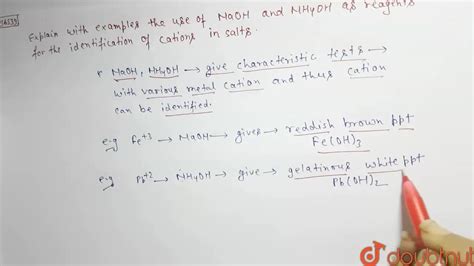 Explain with examples the use of NaOH and NH4OH as reagents
for the identification of cations in salts.
NaOH, NH4OH → give characteristic tests →
with various metal cation and thus cation
can be identified.
e.g Fe+3 → NaOH → gives → reddish brown ppt
Fe(OH)3
e.g Pb+2 → NH4OH → give → gelatinous white ppt
Pb(OH)2
doubtnut